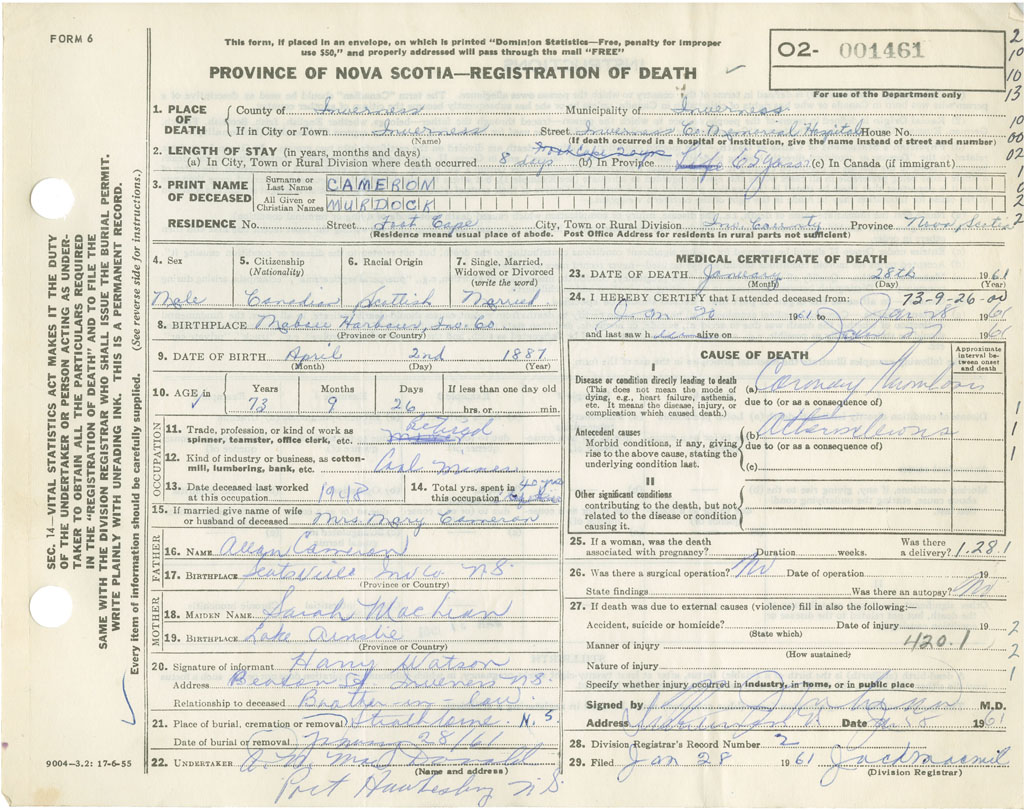 FORM 6
This form, if placed in an envelope, on which is printed "Dominion Statistics—Free, penalty for improper
use $50," and properly addressed will pass through the mail "FREE"
PROVINCE OF NOVA SCOTIA—REGISTRATION OF DEATH
O2- 001461
For use of the Department only
1. PLACE OF DEATH
County of Inverness Municipality of Inverness
If in City or Town Inverness Street Inverness Co. Memorial Hospital House No.
(Name) (If death occurred in a hospital or institution, give the name instead of street and number)
2. LENGTH OF STAY (in years, months and days)
(a) In City, Town or Rural Division where death occurred 8 days (b) In Province (c) In Canada (if immigrant)
3. PRINT NAME OF DECEASED
Surname or Last Name CAMERON
All Given or Christian Names MURDOCK
RESIDENCE No. Street City, Town or Rural Division Inv. County Province Nova Scotia
(Residence means usual place of abode. Post Office Address for residents in rural parts not sufficient)
4. Sex Male
5. Citizenship (Nationality) Canadian
6. Racial Origin Scottish
7. Single, Married, Widowed or Divorced (write the word) Married
8. BIRTHPLACE Mabou Harbour, Inv. Co
(Province or Country)
9. DATE OF BIRTH April 2nd 1887
(Month) (Day) (Year)
10. AGE in Years 73 Months 9 Days 26 If less than one day old hrs. or min.
OCCUPATION
11. Trade, profession, or kind of work as spinner, teamster, office clerk, etc. retired
12. Kind of industry or business, as cotton-mill, lumbering, bank, etc. Coal Mines
13. Date deceased last worked at this occupation 1948
14. Total yrs. spent in this occupation 40 yrs
15. If married give name of wife or husband of deceased Mrs. Mary Cameron
FATHER
16. NAME Allan Cameron
17. BIRTHPLACE Scotsville Inv Co N.S.
(Province or Country)
MOTHER
18. MAIDEN NAME Sarah MacLean
19. BIRTHPLACE Lake Ainslie
(Province or Country)
20. Signature of informant Harry Watson
Address Beacon St Inverness N.S.
Relationship to deceased Brother-in-law
21. Place of burial, cremation or removal Strathlorne N.S
Date of burial or removal 28/61
22. UNDERTAKER MacDonald
(Name and address)
Port Hawkesbury N.S.
9004—3.2: 17-6-55
MEDICAL CERTIFICATE OF DEATH
23. DATE OF DEATH January 28th 1961
(Month) (Day) (Year)
24. I HEREBY CERTIFY that I attended deceased from: 73-9-26-00
Jan 20 1961 to Jan 28 1961
and last saw h alive on Jan 27 1961
CAUSE OF DEATH
Approximate interval between onset and death
I
Disease or condition directly leading to death
(This does not mean the mode of dying, e.g., heart failure, asthenia, etc. It means the disease, injury, or complication which caused death.)
(a) Coronary Thrombosis
due to (or as a consequence of)
Antecedent causes
Morbid conditions, if any, giving rise to the above cause, stating the underlying condition last.
(b)
due to (or as a consequence of)
(c)
II
Other significant conditions contributing to the death, but not related to the disease or condition causing it.
25. If a woman, was the death associated with pregnancy? Duration weeks. Was there a delivery? 1.28.1
26. Was there a surgical operation? No Date of operation 19
State findings Was there an autopsy? No
27. If death was due to external causes (violence) fill in also the following:—
Accident, suicide or homicide? Date of injury 19
(State which)
Manner of injury 420.1
(How sustained)
Nature of injury
Specify whether injury occurred in industry, in home, or in public place
Signed by M.D.
Address Date 1961
28. Division Registrar's Record Number 2
29. Filed Jan 28 1961
(Division Registrar)
SEC. 14—VITAL STATISTICS ACT MAKES IT THE DUTY
OF THE UNDERTAKER OR PERSON ACTING AS UNDER-
TAKER TO OBTAIN ALL THE PARTICULARS REQUIRED
IN THE "REGISTRATION OF DEATH" AND TO FILE THE
SAME WITH THE DIVISION REGISTRAR WHO SHALL ISSUE THE BURIAL PERMIT.
WRITE PLAINLY WITH UNFADING INK. THIS IS A PERMANENT RECORD.
Every item of information should be carefully supplied. (See reverse side for instructions.)